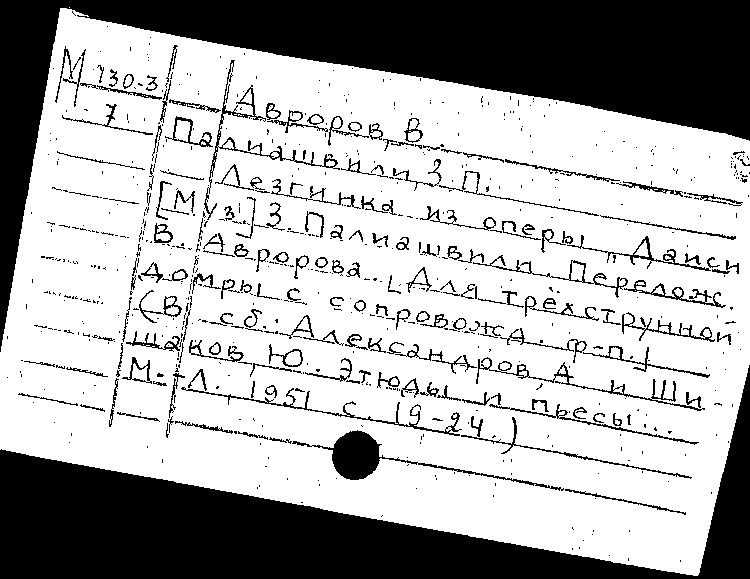 М 130-3
7
Авроров, В.
Палиашвили, З.П.
Лезгинка из оперы "Даиси
[Муз.] З. Палиашвили. Перелож.
В. Авророва. [Для трёхструнной
домры с сопровожд. ф-п.]
(В сб.: Александров, А и Ши-
шаков, Ю. Этюды и пьесы...
М.-Л., 1951 с. 19-24.)